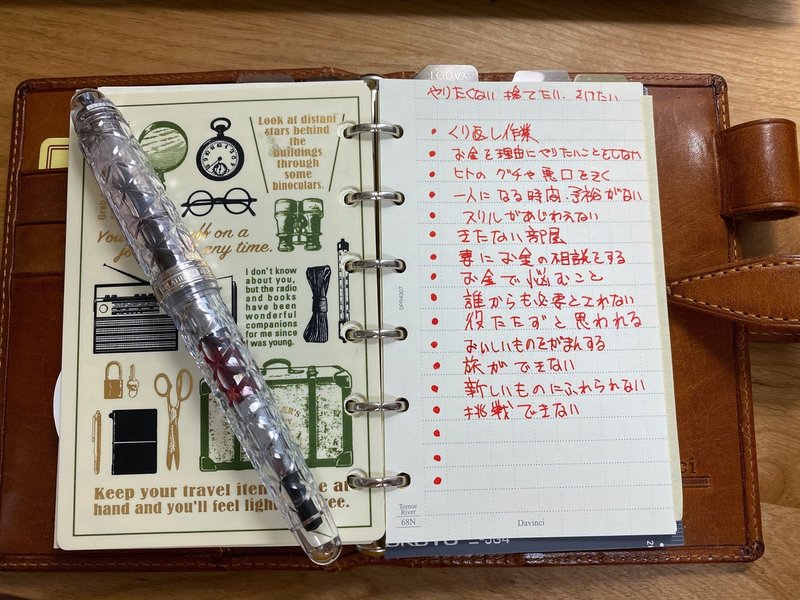 Look at distant
stars behind
the
buildings
through
some
binoculars.
off on a
any time.
I don't know
about you,
but the radio
and books
have been
wonderful
companions
for me since
I was young.
Keep your travel at
hand and you'll feel
TODAY
やりたくない 捨てたい さけたい
・くり返し作業
・お金を理由にやりたいことをしない
・ヒトの グチや悪口をきく
・一人になる時間、予裕がない
・スリルがあじわえない
・きたない部屋
・妻にお金の相談をする
・お金で悩むこと
・誰からも必要とされない
・役たたずと思われる
・おいしいものをがまんする
・旅ができない
・新しいものにふれられない
・挑戦できない
・
・
・
Tomoe
River
68N
Davinci